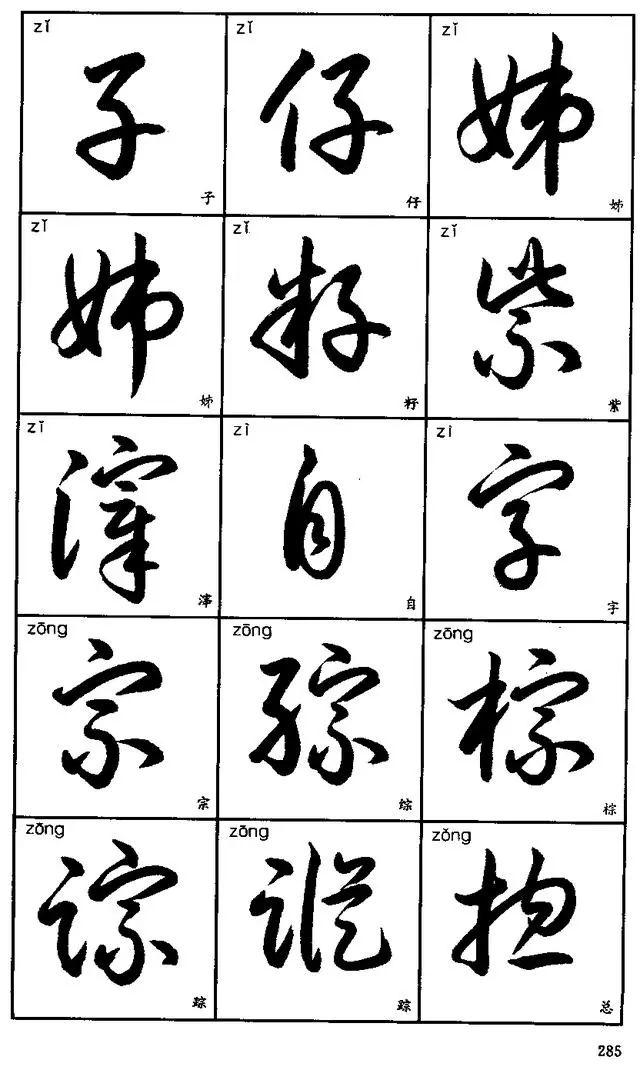 zǐ zǐ zǐ
子 仔 姊
子 仔 姊
zǐ zǐ zǐ
姊 籽 紫
姊 籽 紫
zǐ zì zì
滓 自 字
滓 自 字
zōng zōng zōng
宗 綜 棕
宗 综 棕
zōng zōng zǒng
踪 蹤 摠
踪 踪 总
285